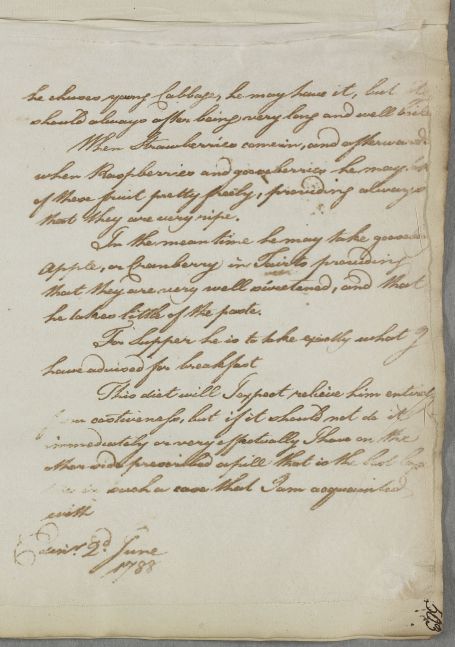 he chuses young Cabbage, he may have it, but it
should always after being very long and well boiled
When Strawberries come in, and afterwards
when Raspberries and gooseberries he may
of these fruit pretty freely, providing always
that they are very ripe.
In the mean time he may take goose
Apple, or Cranberry in Tairts providing
that they are very well sweetened, and that
he takes little of the paste.
For supper he is to take exactly what I
have advised for breakfast
This diet will I expect relieve him entirely
from costiveness, but if it should not do it
immediatly or very effectually I have on the
other side prescribed a pill that is the best
in such a case that I am acquainted
with
Edinr. 2d. June
1788